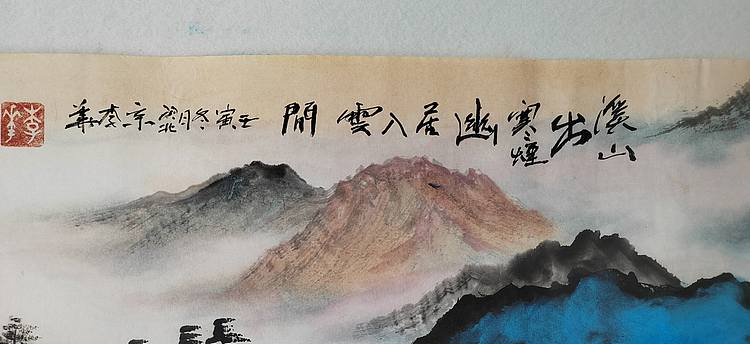 溪山出寒煙幽居入雲間
壬寅冬月冀北京李華
李華